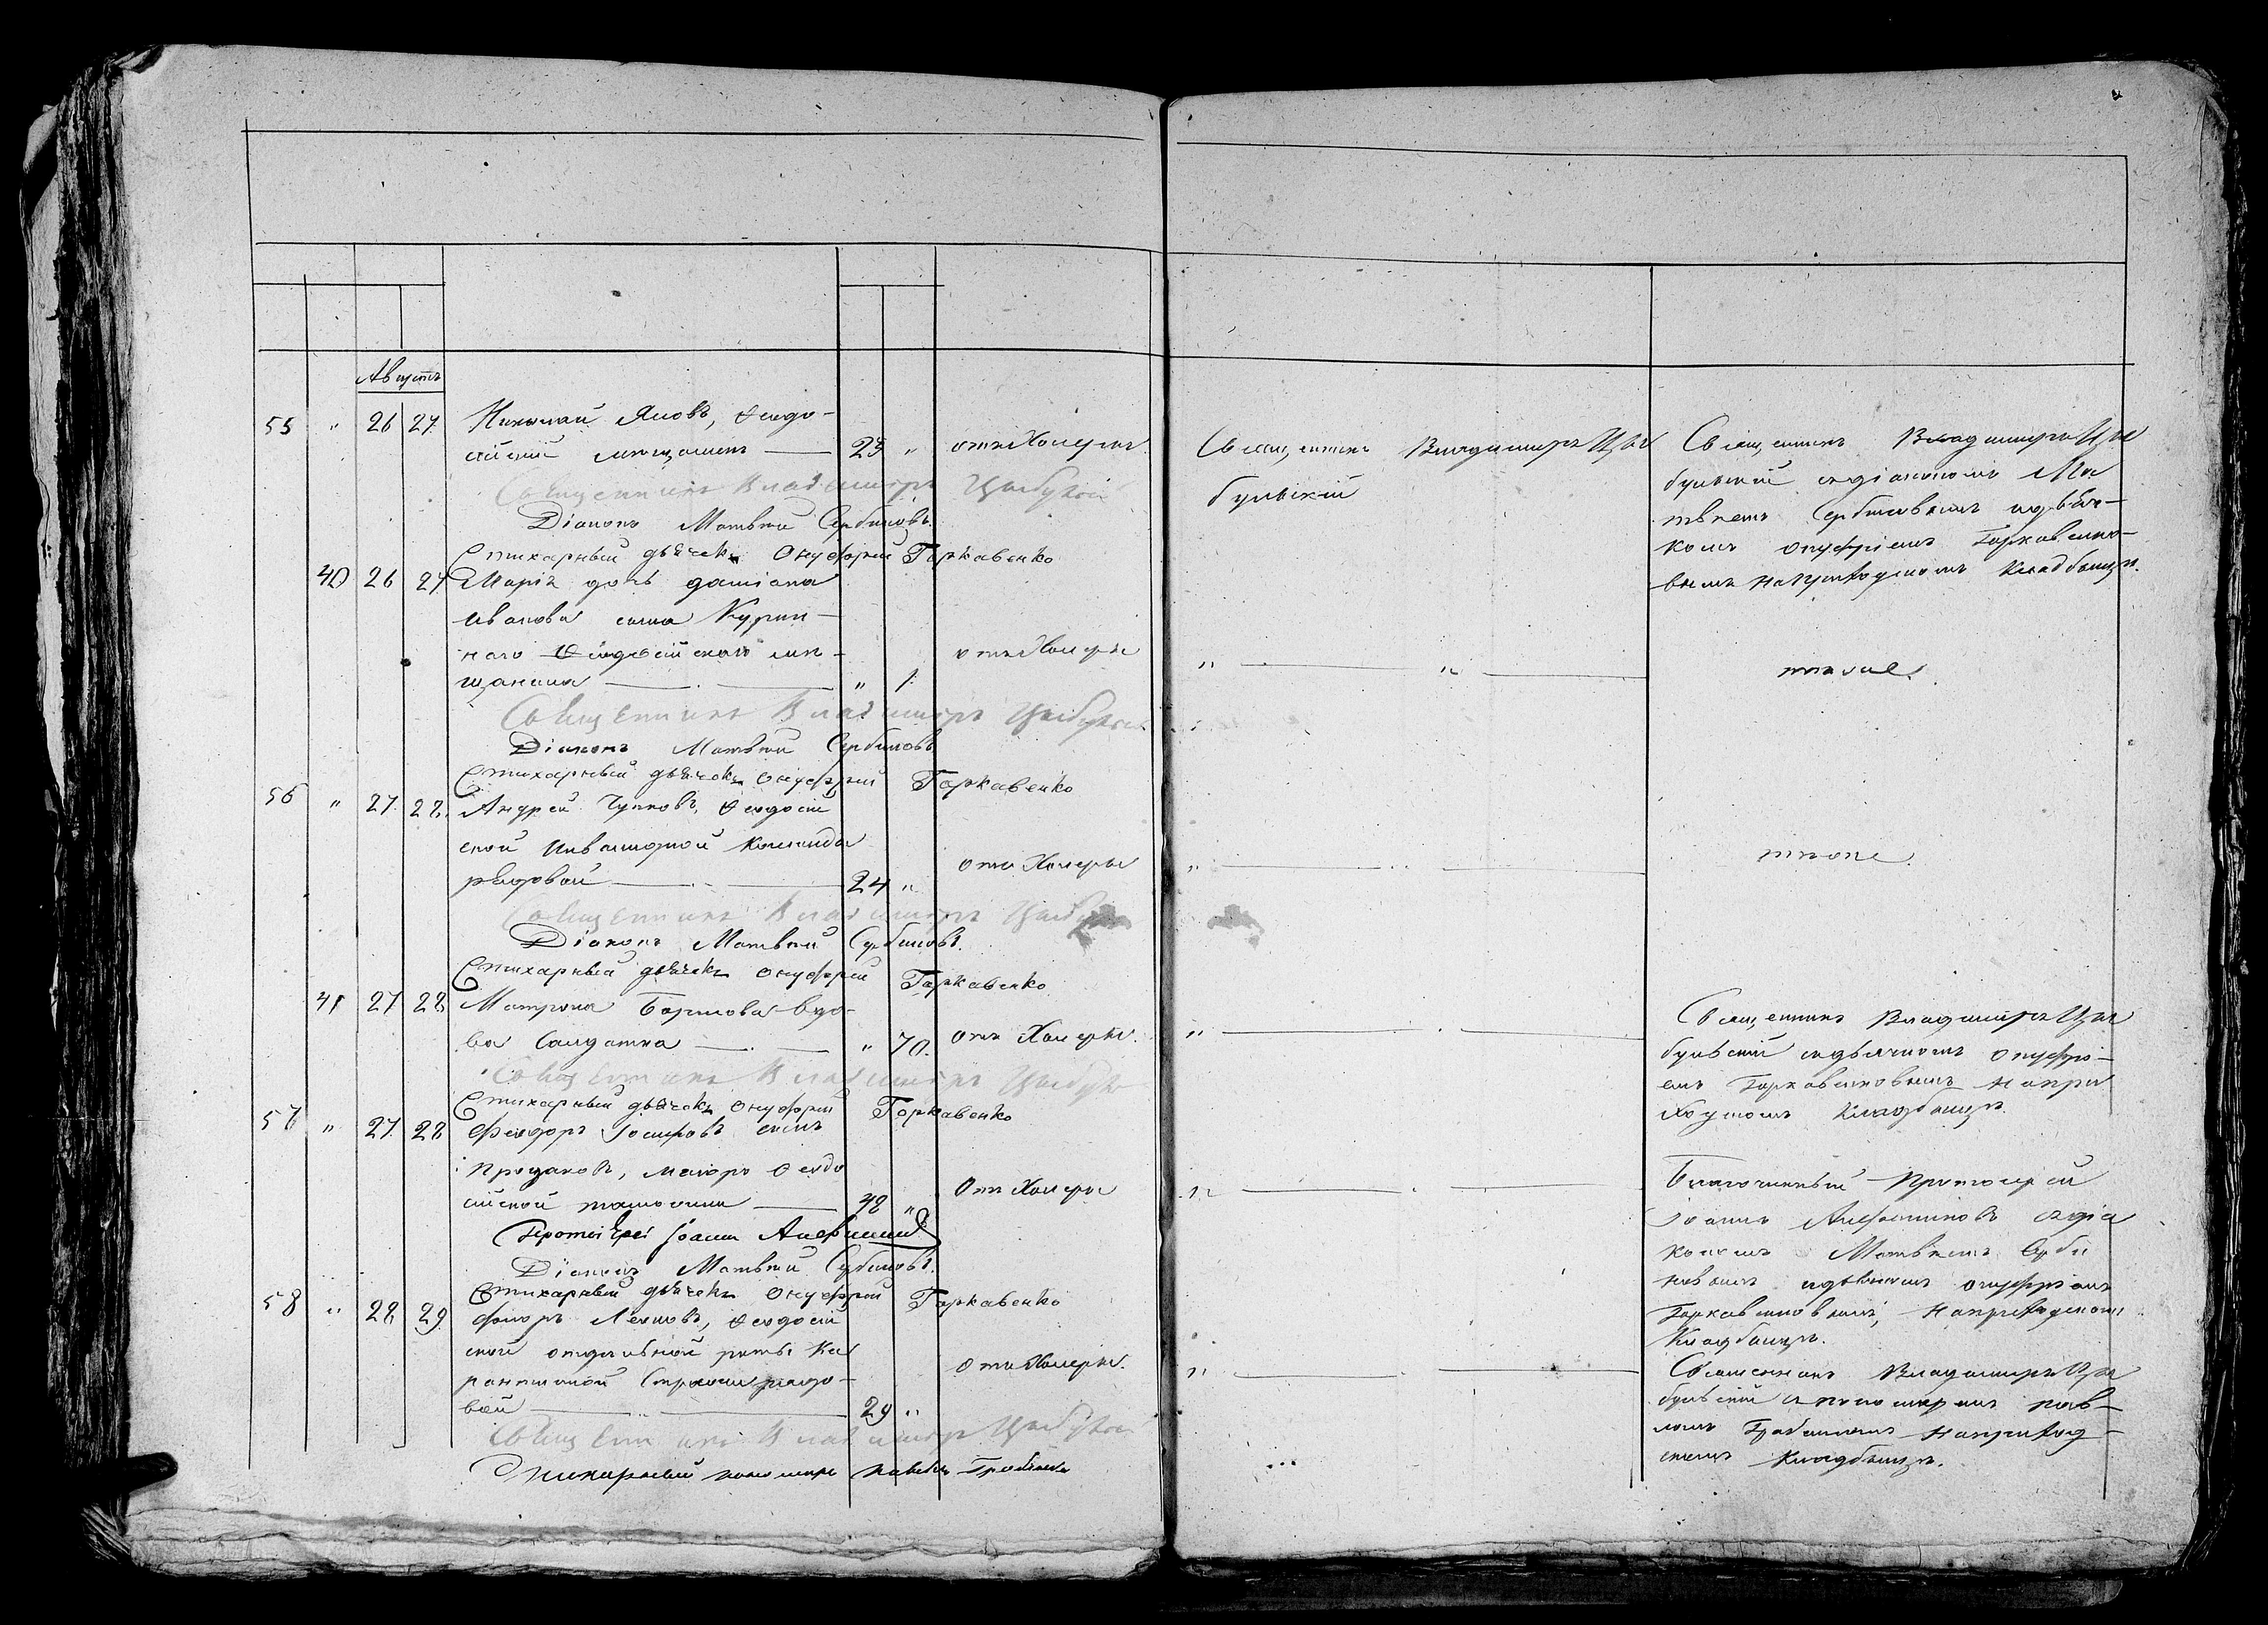 Августъ
55 " 26 27 Николай Яновъ, Ѳеодо-
сійскій мѣщанинъ — 23 " отъ Холеры
Священникъ Владимиръ Цыбульскій
Діаконъ Матвѣй Сербиновъ.
Стихарный дьячекъ Онуфрій Горкавенко
40 26 27 Марія дочь даміана
Иванова сына Курин-
наго Ѳеодосійскаго мѣ-
щанина — " 1. отъ Холеры
Священникъ Владимиръ Цыбульскій
Діаконъ Матвѣй Сербиновъ
Стихарный дьячекъ Онуфрій Горкавенко
56 " 27 28. Андрей Чупковъ, Ѳеодосій
ской Инвалидной Команды
рядовой — 24 " отъ Холеры
Священникъ Владимиръ
Діаконъ Матвѣй Сербиновъ.
Стихарный дьячекъ Онуфрій Горкавенко
41 27 28 Матрона вдо-
ва Салдатка — " 70. отъ Холеры.
Священникъ Владимиръ
Стихарный дьячекъ Онуфрій Горкавенко
57 " 27 28 Феодоръ Іосифовъ сынъ
маіоръ Ѳеодо
сійской таможни — 48 " Отъ Холеры
Протоіерей Іоаннъ
Діаконъ Матвѣй Сербиновъ.
Стихарный дьячекъ Онуфрій Горкавенко
58 " 28 29 Флоръ Леоновъ, Ѳеодосій
ской отдѣльной роты Ка
рантинной Стражи рядо-
вой — 29 " отъ Холеры.
Священникъ Владимиръ
Стихарный пономарь Павелъ
Священникъ Владимиръ Цы
бульскій
" — " —
" —
" —
" —
" —
Священникъ Владимиръ Цы
бульскій съ діакономъ Ма
твѣемъ Сербиновымъ и дьяч-
комъ Онуфріемъ Горкавенко-
вымъ на приходскомъ Кладбищѣ.
тѣ же.
тѣ же.
Священникъ Владимиръ Цы
бульскій съ дьячкомъ Онуфрі-
емъ Горкавенковымъ на при
ходскомъ Кладбищѣ.
Благочинный Протоіерей
Іоаннъ съ діа
кономъ Матвѣемъ Серби
новымъ и дьячкомъ Онуфріемъ
Горкавенковымъ, на приходскомъ
Кладбищѣ.
Священникъ Владимиръ Цы
бульскій съ пономаремъ Пав-
ломъ на приход-
скомъ Кладбищѣ.